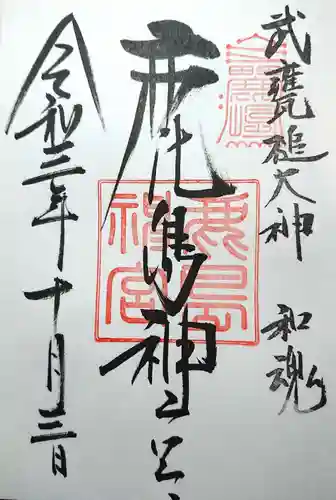 武甕槌大神 和魂
鹿島神宮
令和三年十月三日
鹿島神宮